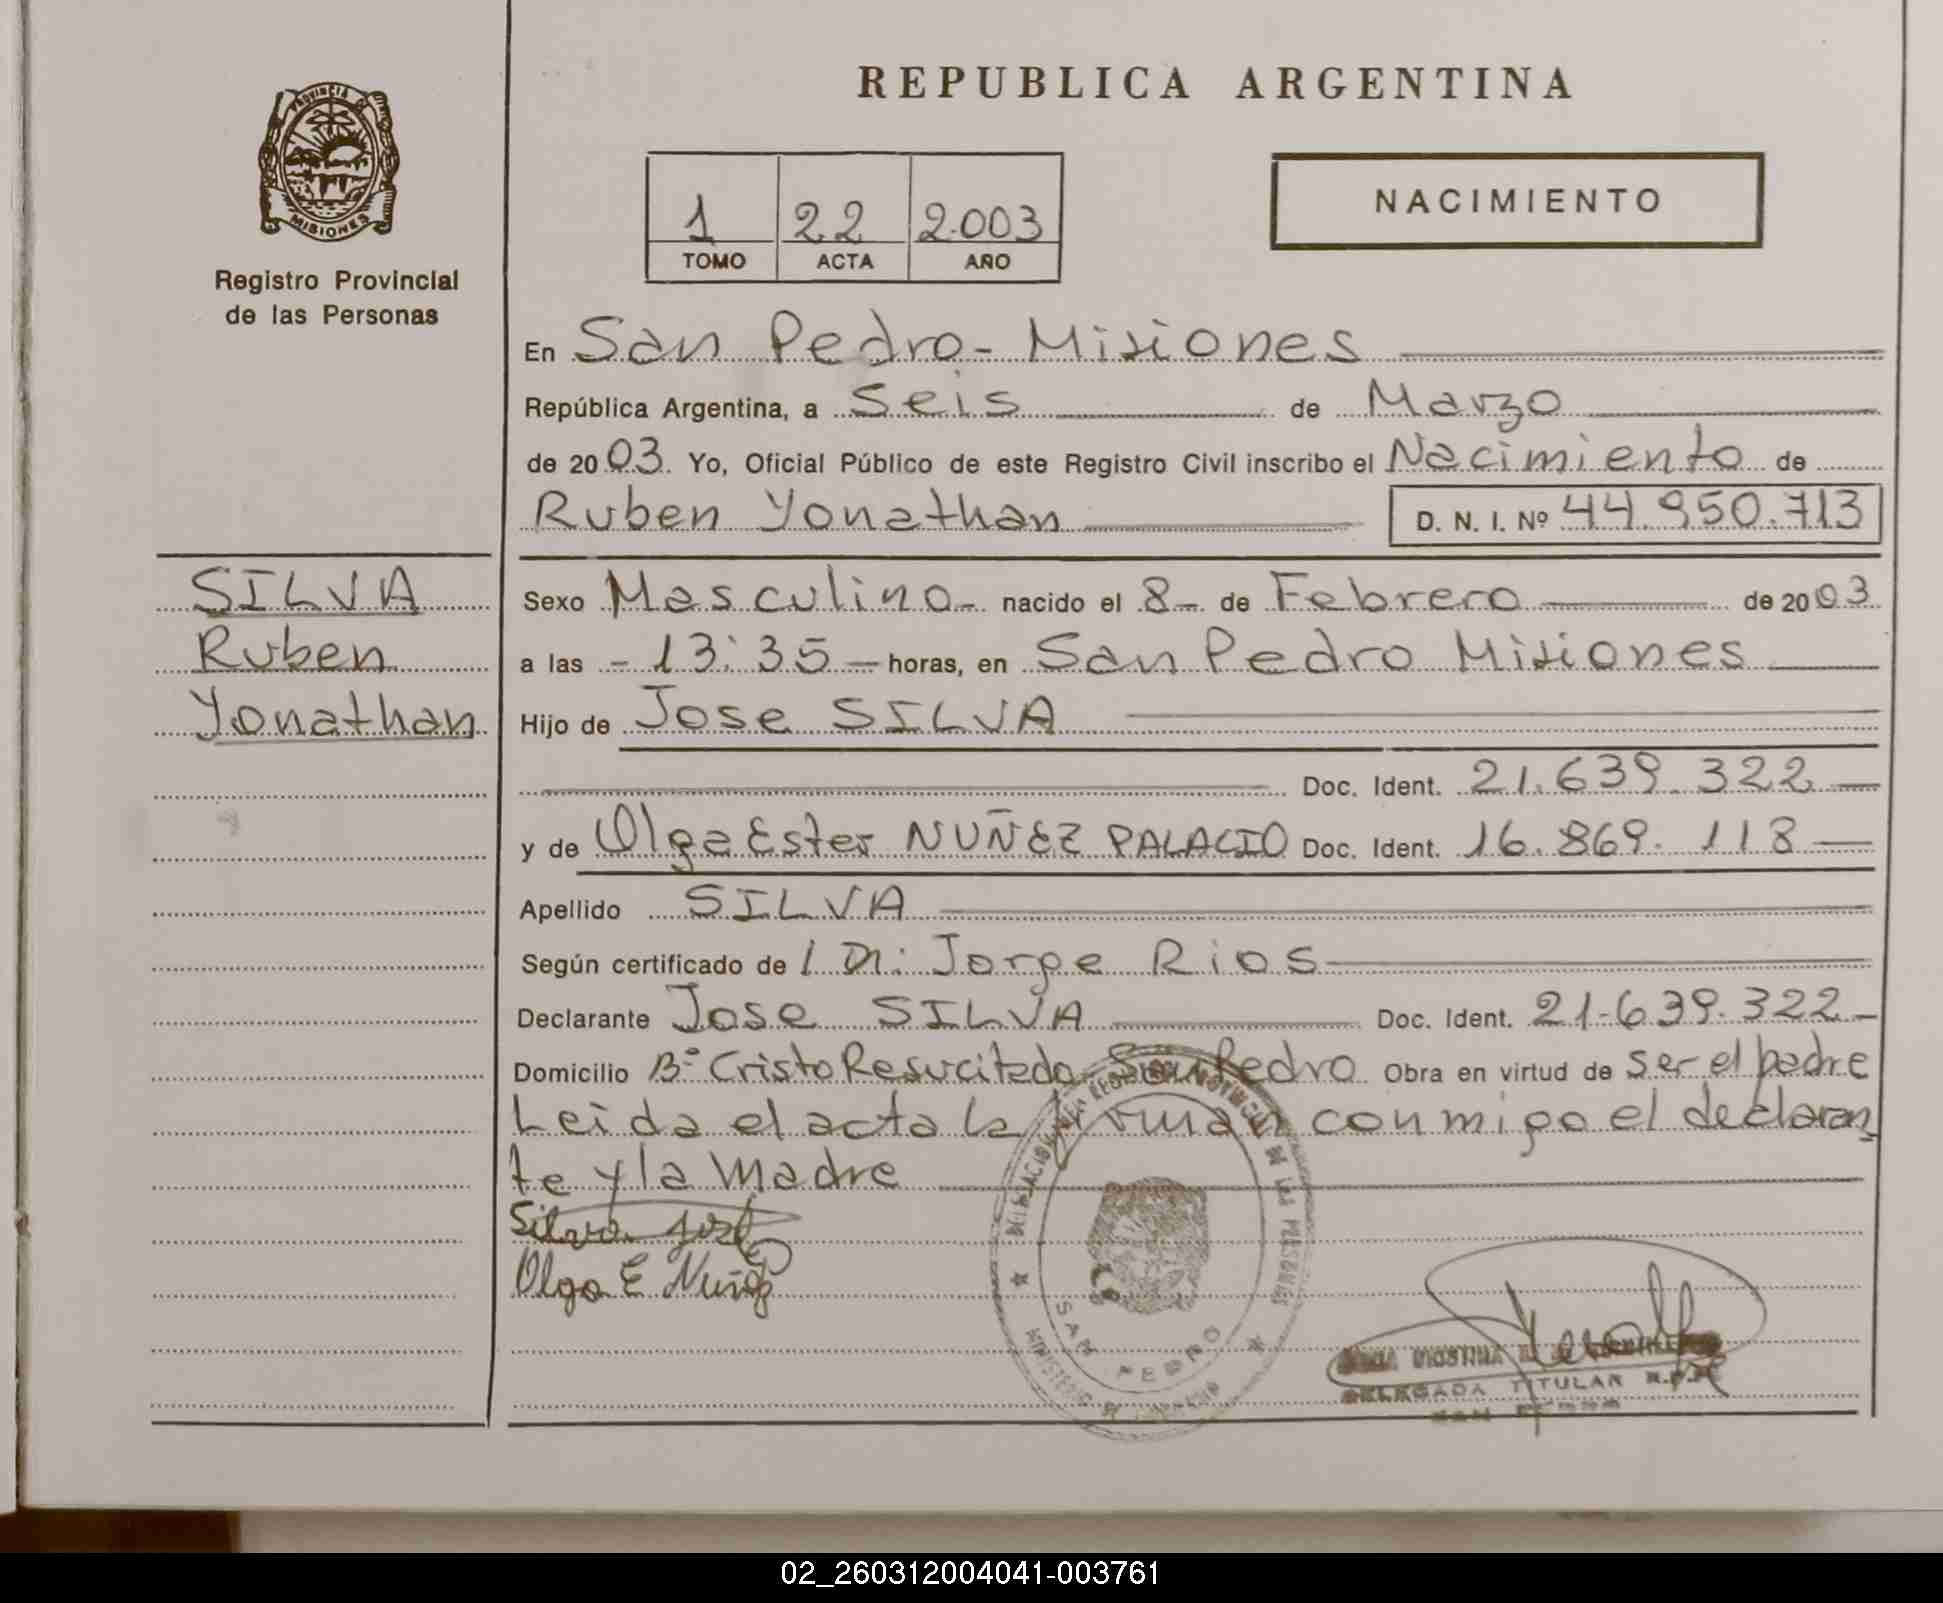 REPUBLICA ARGENTINA
PROVINCIA DE
MISIONES
Registro Provincial
de las Personas
1 22 2.003
TOMO ACTA AÑO
NACIMIENTO
En San Pedro - Misiones
República Argentina, a Seis de Marzo
de 2003. Yo, Oficial Público de este Registro Civil inscribo el Nacimiento de
Ruben Yonathan D. N. I. Nº 44.950.713
SILVA
Ruben
Yonathan
Sexo Masculino - nacido el 8 - de Febrero de 2003
a las - 13:35 - horas, en San Pedro Misiones
Hijo de Jose SILVA
Doc. Ident. 21.639.322
y de Olga Ester NUÑEZ PALACIO Doc. Ident. 16.869.118
Apellido SILVA
Según certificado de Jorge Rios
Declarante Jose SILVA Doc. Ident. 21.639.322
Domicilio Bº Cristo Resucitado San Pedro Obra en virtud de ser el padre
Leida el acta la firman conmigo el declaran
te y la Madre
Silva José
Olga E Nuñez
SAN PEDRO
DELEGADA TITULAR R.P.P.
SAN PEDRO
02_260312004041-003761